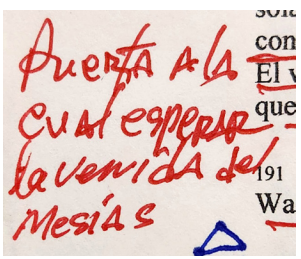 Puerta a la
cual esperar
la venida del
Mesías
con
El v
que
191
Wa